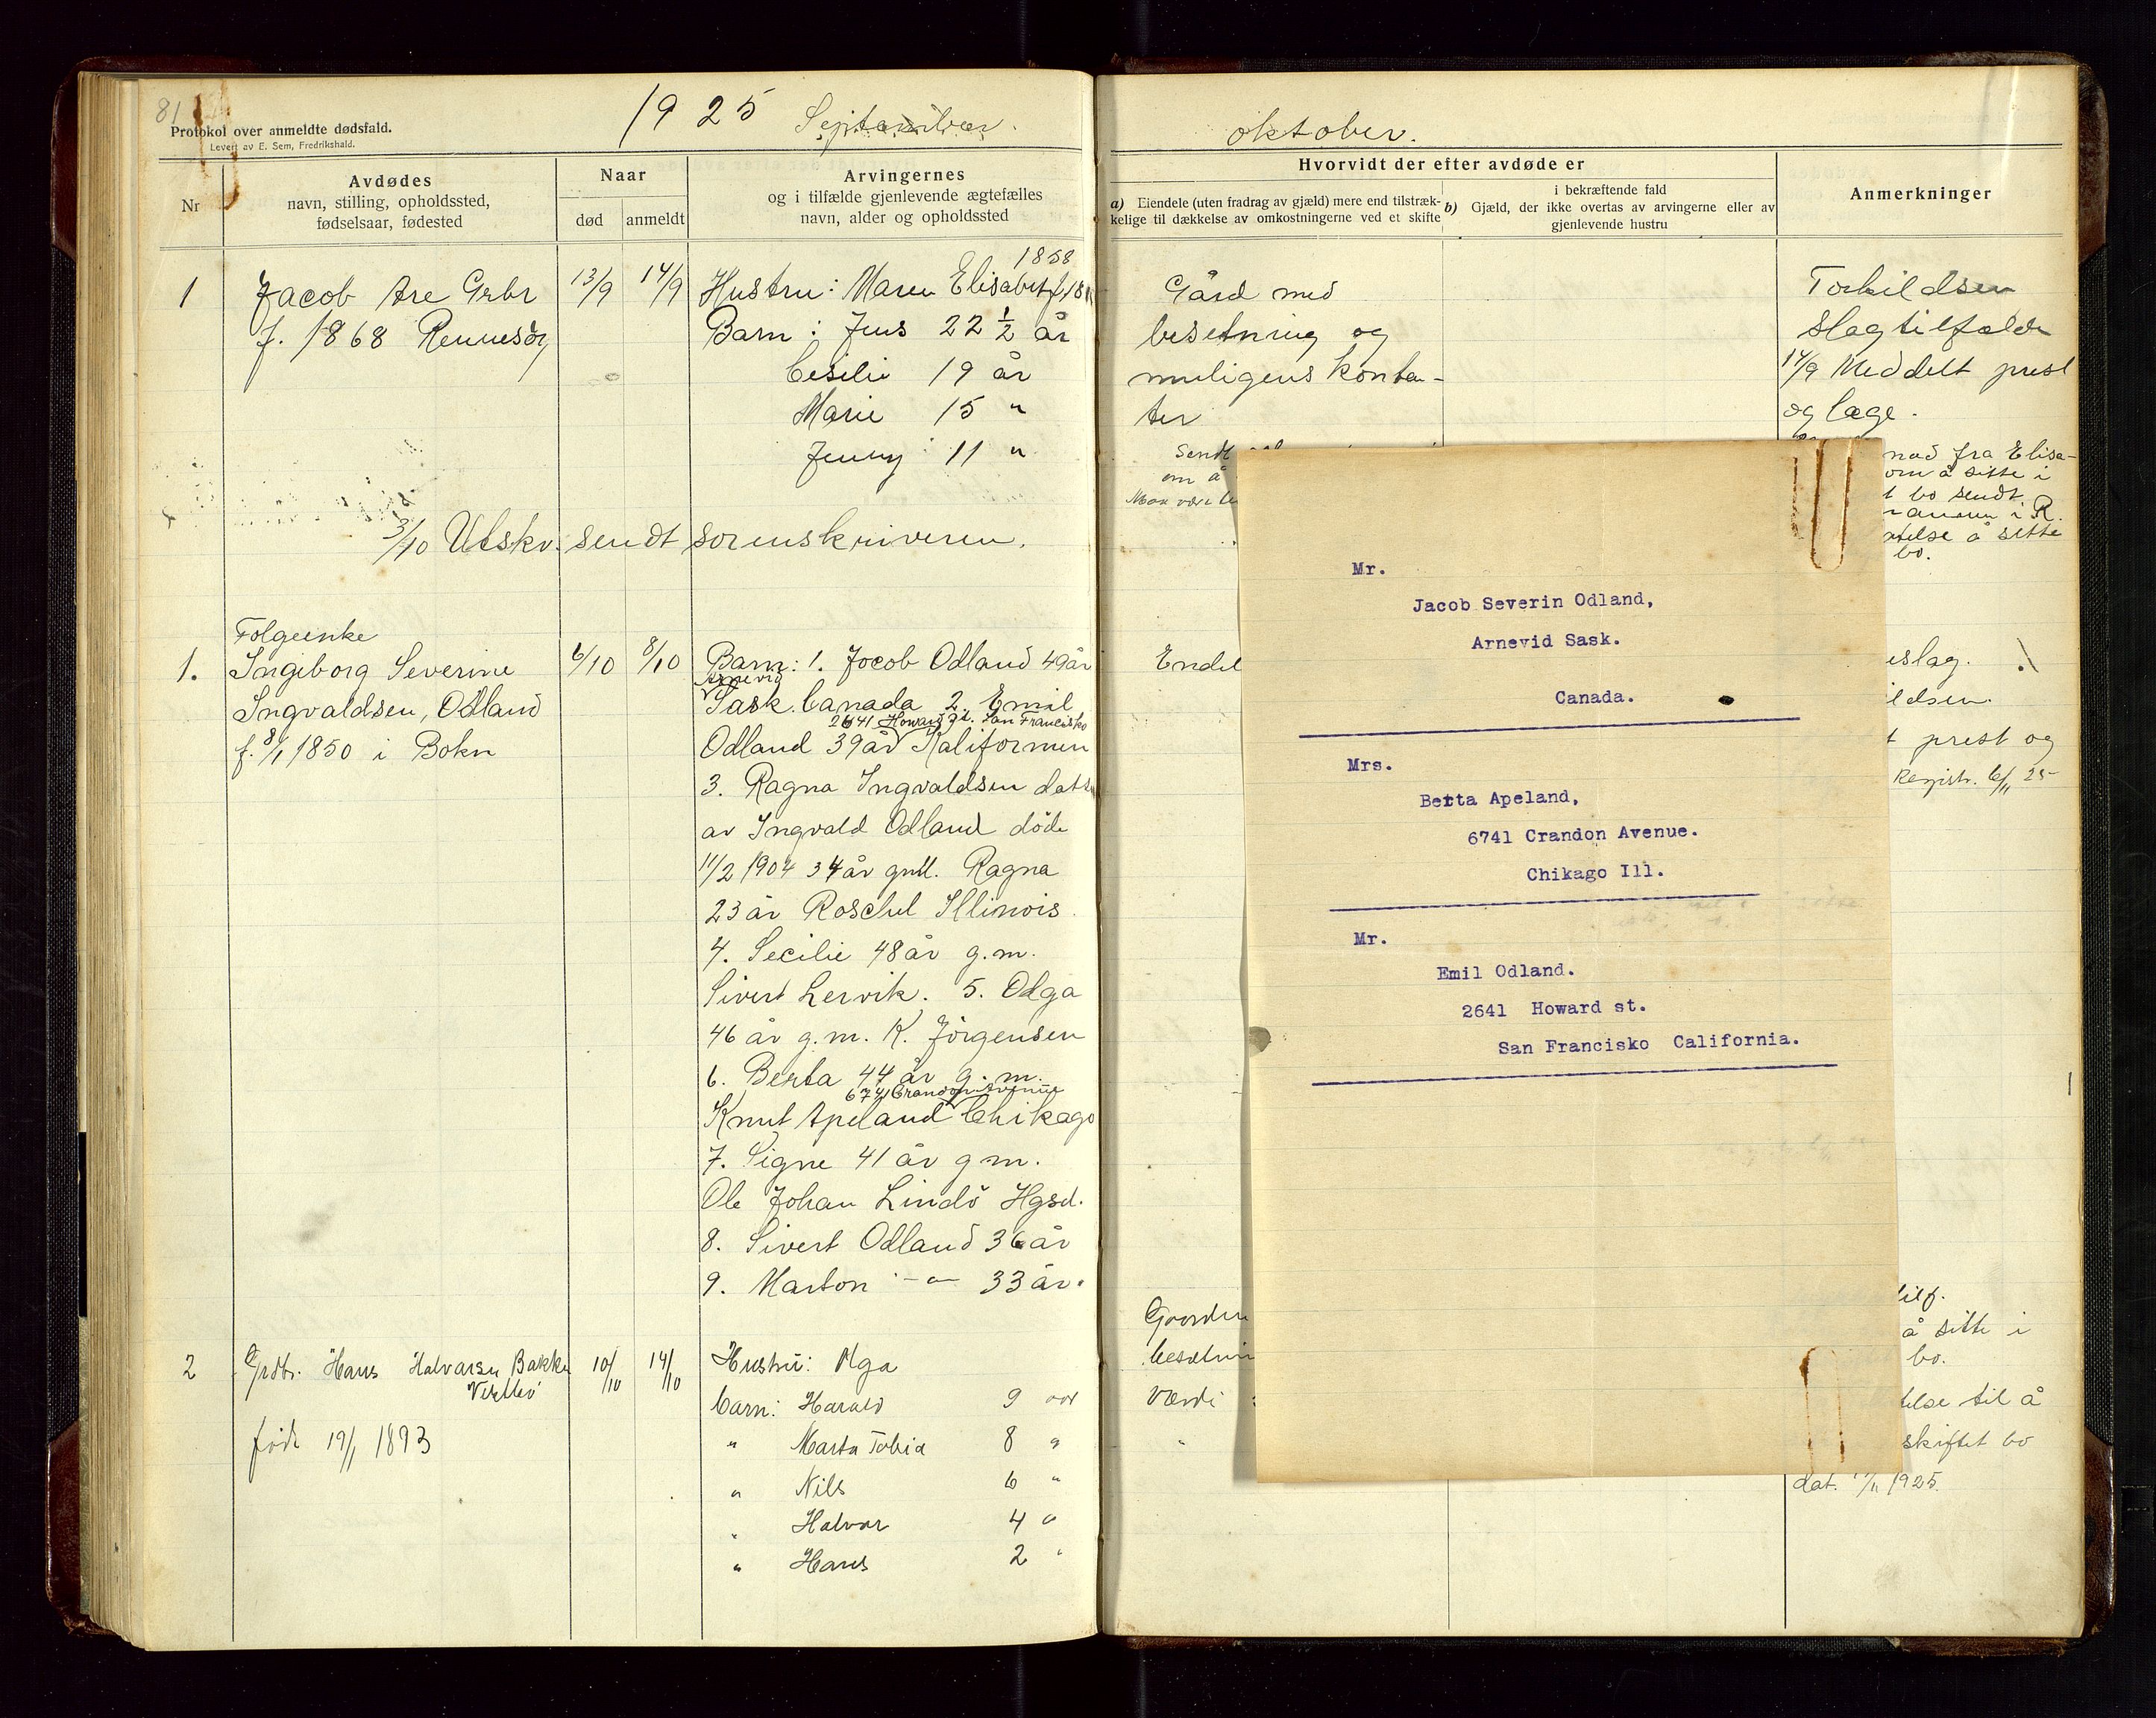 81
Protokol over anmeldte dødsfald.
Levert av E. Sem, Fredrikshald.
1925 September.
oktober.
Nr
Avdødes
navn, stilling, opholdssted,
fødselsaar, fødested
Naar
død
anmeldt
Arvingernes
og i tilfælde gjenlevende ægtefælles
navn, alder og opholdssted
Hvorvidt der efter avdøde er
a) Eiendele (uten fradrag av gjæld) mere end tilstræk-
kelige til dækkelse av omkostningerne ved et skifte
i bekræftende fald
b) Gjæld, der ikke overtas av arvingerne eller av
gjenlevende hustru
Anmerkninger
1
Jacob Are Grbr
f. 1868 Rennesöy
13/9
14/9
1858
Hustru: Maren Elisabet f. 18
Barn: Jens 22½ år
Cesilie 19 år
Marie 15 "
Jenny 11 "
3/10 Utskr. sendt sorenskriveren.
Gård med
besetning og
muligens konta-
ter
Sendt
om å
Torkildsen
Slagtilfælde
14/9 Meddelt prest
og læge.
nad fra Elisa-
om å sitte i
t bo sendt
i R.
atelse å sitte
bo.
1.
Folgeenke
Ingeborg Severine
Ingvaldsen, Odland
f. 8/1 1850 i Bokn
6/10
8/10
Barn: 1. Jocob Odland 49år
Arnevig
Sask. Canada 2. Emil
2641 Howard st. San Francisko
Odland 39år Kalifornien
3. Ragna Ingvaldsen datt
av Ingvald Odland döde
11/2 1904 34år gml. Ragna
23år Roschel Illinois
4. Secilie 48år g.m.
Sivert Lervik. 5. Olga
46 år g.m. K. Jörgensen
6. Berta 44 år g.m.
6741 Crandon Avenue
Knut Apeland Chikago
7. Signe 41 år g m.
Ole Johan Lindö Hgsd.
8. Sivert Odland 36år
9. Marton -"- 33år.
Endel
eslag.
ildsen.
t prest og
Registr. 6/11 25
Mr.
Jacob Severin Odland,
Arnevid Sask.
Canada.
Mrs.
Betta Apeland,
6741 Crandon Avenue.
Chikago Ill.
Mr.
Emil Odland.
2641 Howard st.
San Francisko California.
2
Grdbr. Hans Halvarsen Bakke
föde 19/1 1893
10/10
14/10
Hustru: Olga
barn: Harald 9 aar
" Marta Tobia 8 "
" Nils 6 "
" Halvar 4 "
" Hans 2 "
Gaarden
besætnin
Værdi
tilf.
å sitte i
bo.
telse til å
skiftet bo
dat. /11 1925.